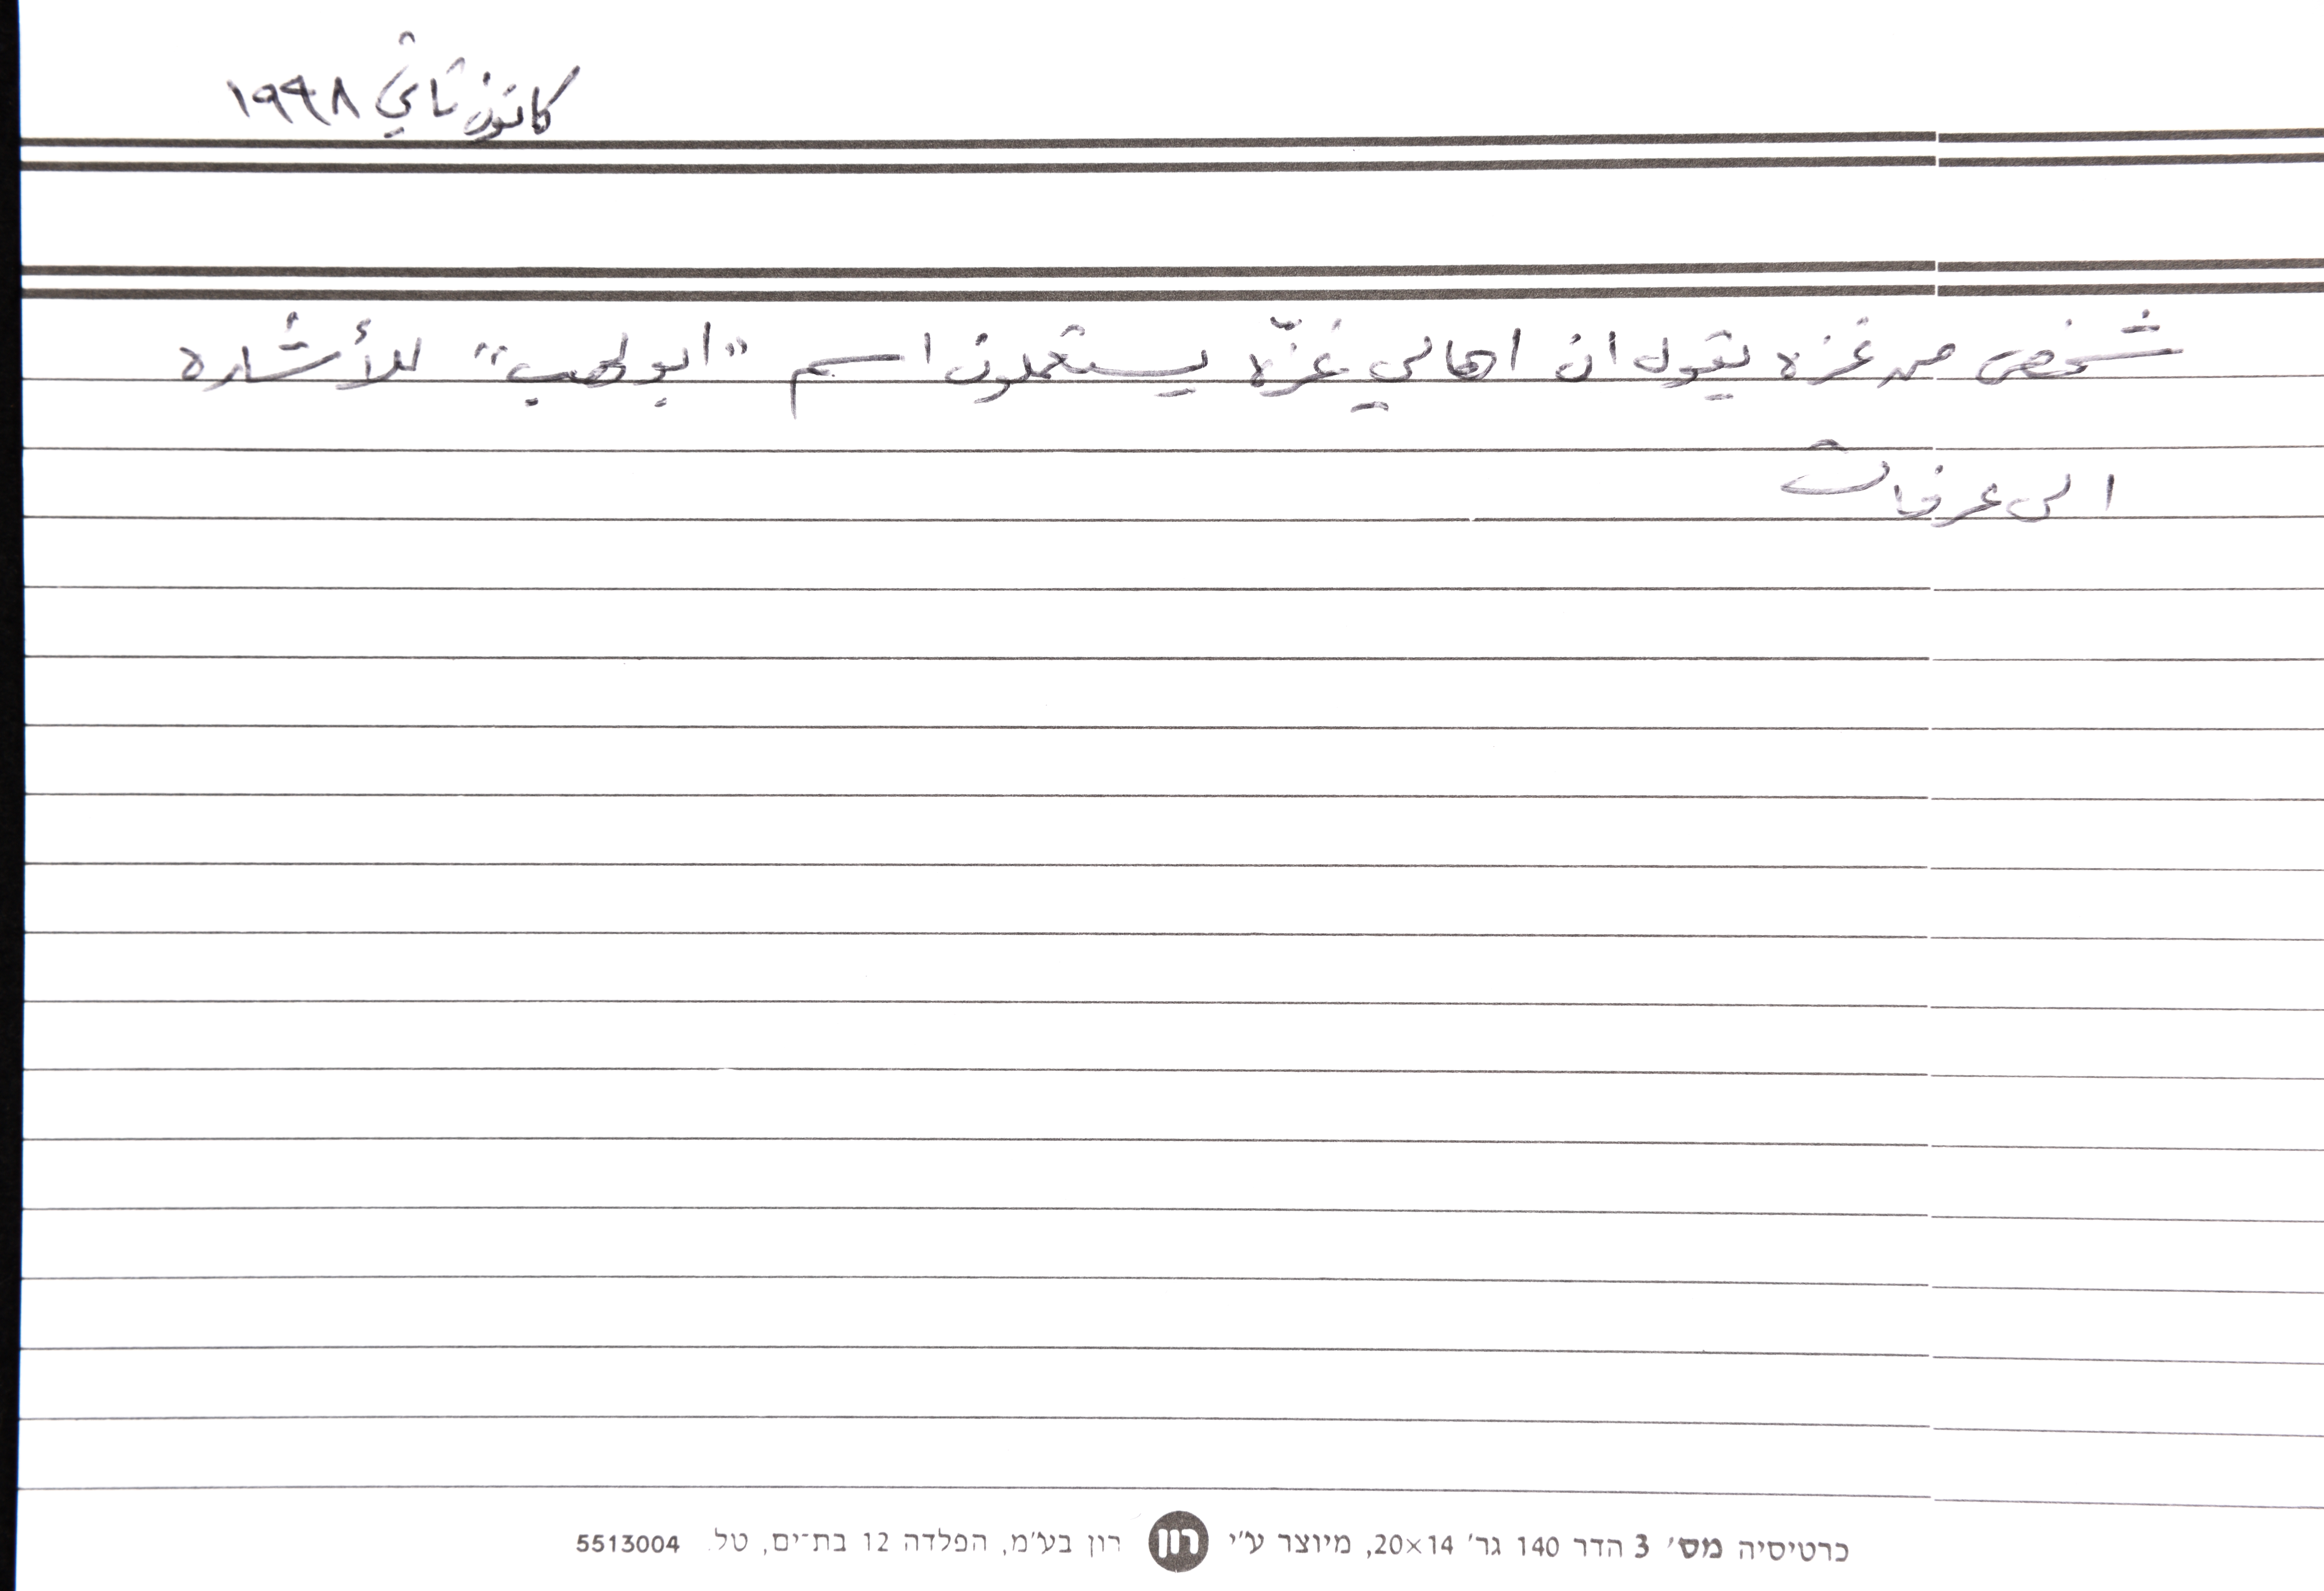 كانون ثاني ١٩٩٨
شخص من غزه يقول ان اهالي غزّه يستعملون اسم "ابو لهب" للأشاره
الى عرفات
כרטיסיה מס׳ 3 הדר 140 גר׳ 20×14, מיוצר ע״י רון רון בע״מ, הפלדה 12 בת־ים, טל. 5513004